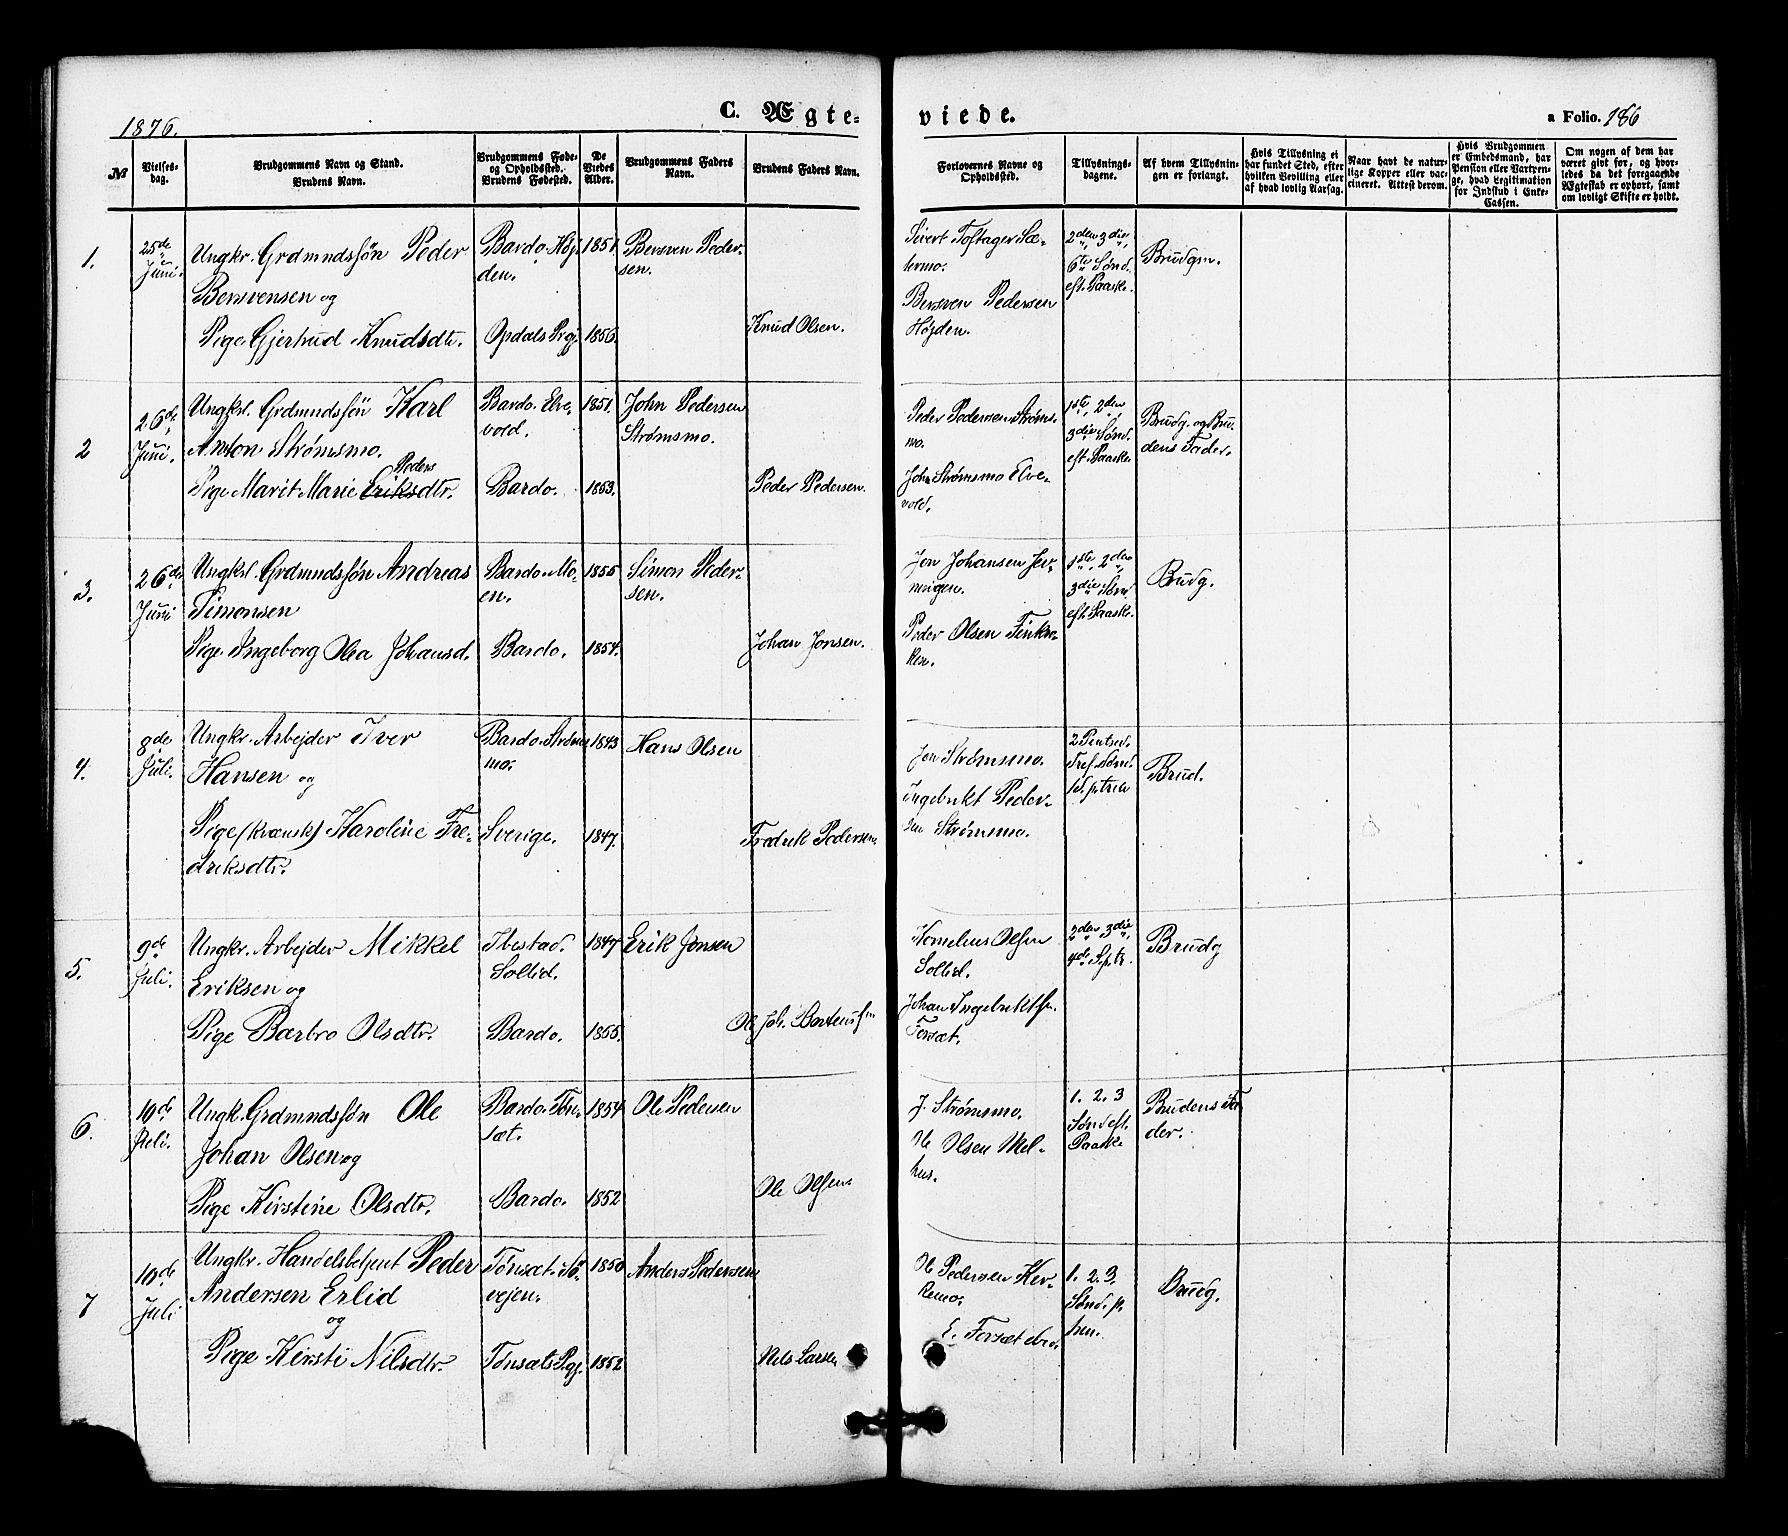 1876.
C. Ægte-
viede.
a Folio. 186
№
Vielses-
dag.
Brudgommens Navn og Stand.
Brudens Navn.
Brudgommens Føde-
og Opholdssted.
Brudens Fødested.
De
Viedes
Alder.
Brudgommens Faders
Navn.
Brudens Faders Navn.
Forlovernes Navne og
Opholdssted.
Tillysnings-
dagene.
Af hvem Tillysnin-
gen er forlangt.
Hvis Tillysning ei
har fundet Sted, efter
hvilken Bevilling eller
af hvad lovlig Aarsag.
Naar havt de natur-
lige Kopper eller vac-
cineret. Attest derom.
Hvis Brudgommen
er Embedsmand, har
Pension eller Vartpen-
ge, hvad Legitimation
for Indskud i Enke-
Cassen.
Om nogen af dem har
været gift før, og hvor-
ledes da det foregaaende
Ægteskab er ophørt, samt
om lovligt Skifte er holdt.
1.
25de
Juni.
Ungkr. Grdmndssön Peder
Bersvensen og
Pige Gjertrud Knudsdtr.
Bardo. Høj-
den.
Opdals Prgj.
1851.
1856.
Bersven Peder-
sen.
Knud Olsen.
Sivert Toftager Sæ-
termo.
Bersven Pedersen
Højden.
2den 3die,
6te Sönd.
eft. Paaske.
Brudgm.
2
26de
Juni.
Ungkrl. Grdmndssön Karl
Anton Strømsmo.
Peders
Pige Marit Marie Eriksdtr.
Bardo. Elve-
vold.
Bardo.
1851.
1853.
John Pedersen
Strømsmo.
Peder Pedersen.
Peder Pedersen Strøms-
mo.
John Strømsmo Elve-
vold.
1ste, 2den,
3die Sönd.
eft. Paaske.
Brudg. og Bru-
dens Fader.
3.
26de
Juni
Ungkrl. Grdmndssön Andreas
Simonsen
Pige Ingeborg Olea Johansd.
Bardo. Mo-
en.
Bardo.
1855
1854.
Simon Peder-
sen.
Johan Jonsen.
Jon Johansen
Peder Olsen
1ste, 2den
3die Sönd
eft. Paaske.
Brudg.
4.
8de
Juli.
Ungkr. Arbejder Iver
Hansen og
Pige (kvænsk) Karoline Fre-
driksdtr.
Bardo. Strøms-
mo.
Sverige.
1843
1847.
Hans Olsen
Fredrik Pedersen
Jon Strømsmo.
Ingebrikt Peder-
sen Strømsmo.
Brud.
5.
9de
Juli.
Ungkr. Arbejder Mikkel
Eriksen og
Pige Barbro Olsdtr.
Ibestad.
Sollid.
Bardo.
1847
1855.
Erik Jonsen
Kornelius Olsen
Sollid.
Johan Ingebriktsn.
Forsæt.
2den 3die,
4de
Brudg
6.
10de
Juli.
Ungk. Grdmndssön Ole
Johan Olsen og
Pige Kirstine Olsdtr.
Bardo. Fors-
sæt.
Bardo.
1854
1852
Ole Pedersen
Ole Olsen
J. Strømsmo.
Ole Olsen Mel-
hus.
1. 2. 3
Sønd eft.
Paaske
Brudens Fa-
der.
7
10de
Juli
Ungkr. Handelsbetjent Peder
Andersen Erlid
og
Pige Kirsti Nilsdtr.
Tönsæt.
vejen.
Tönsæts Prgj.
1850
1852
Anders Pedersen
Nels Larsen
Ole Pedersen Kir-
kemo.
E. Forsæt
1. 2. 3.
Sønd. p.
Brudg.